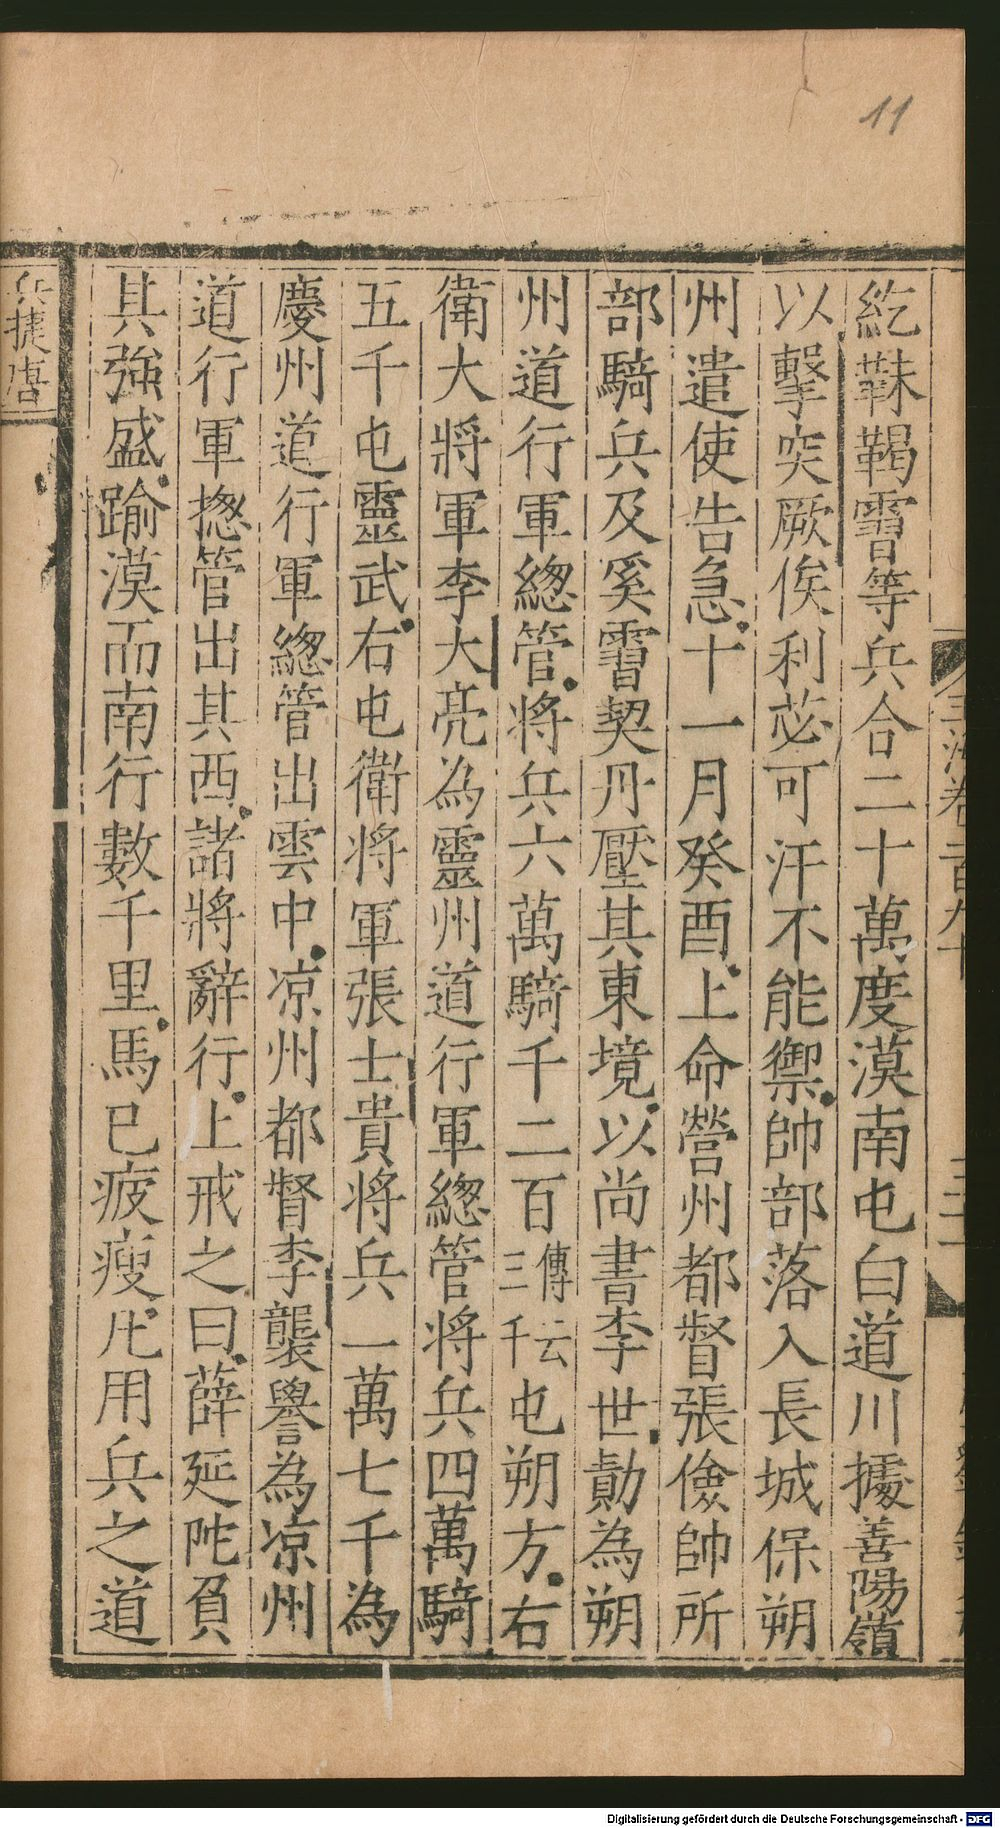 11
紇靺鞨霫等兵合二十萬度漠南屯白道川據善陽嶺
以擊突厥俟利苾可汗不能禦帥部落入長城保朔
州遣使告急十一月癸酉上命營州都督張儉帥所
部騎兵及奚霫契丹壓其東境以尚書李世勣為朔
州道行軍總管將兵六萬騎千二百傳云三千屯朔方右
衛大將軍李大亮為靈州道行軍總管將兵四萬騎
五千屯靈武右屯衛將軍張士貴將兵一萬七千為
慶州道行軍總管出雲中凉州都督李襲譽為凉州
道行軍摠管出其西諸將辭行上戒之曰薛延陀負
其強盛踰漠而南行數千里馬已疲瘦凡用兵之道
兵捷唐
Digitalisierung gefördert durch die Deutsche Forschungsgemeinschaft - DFG